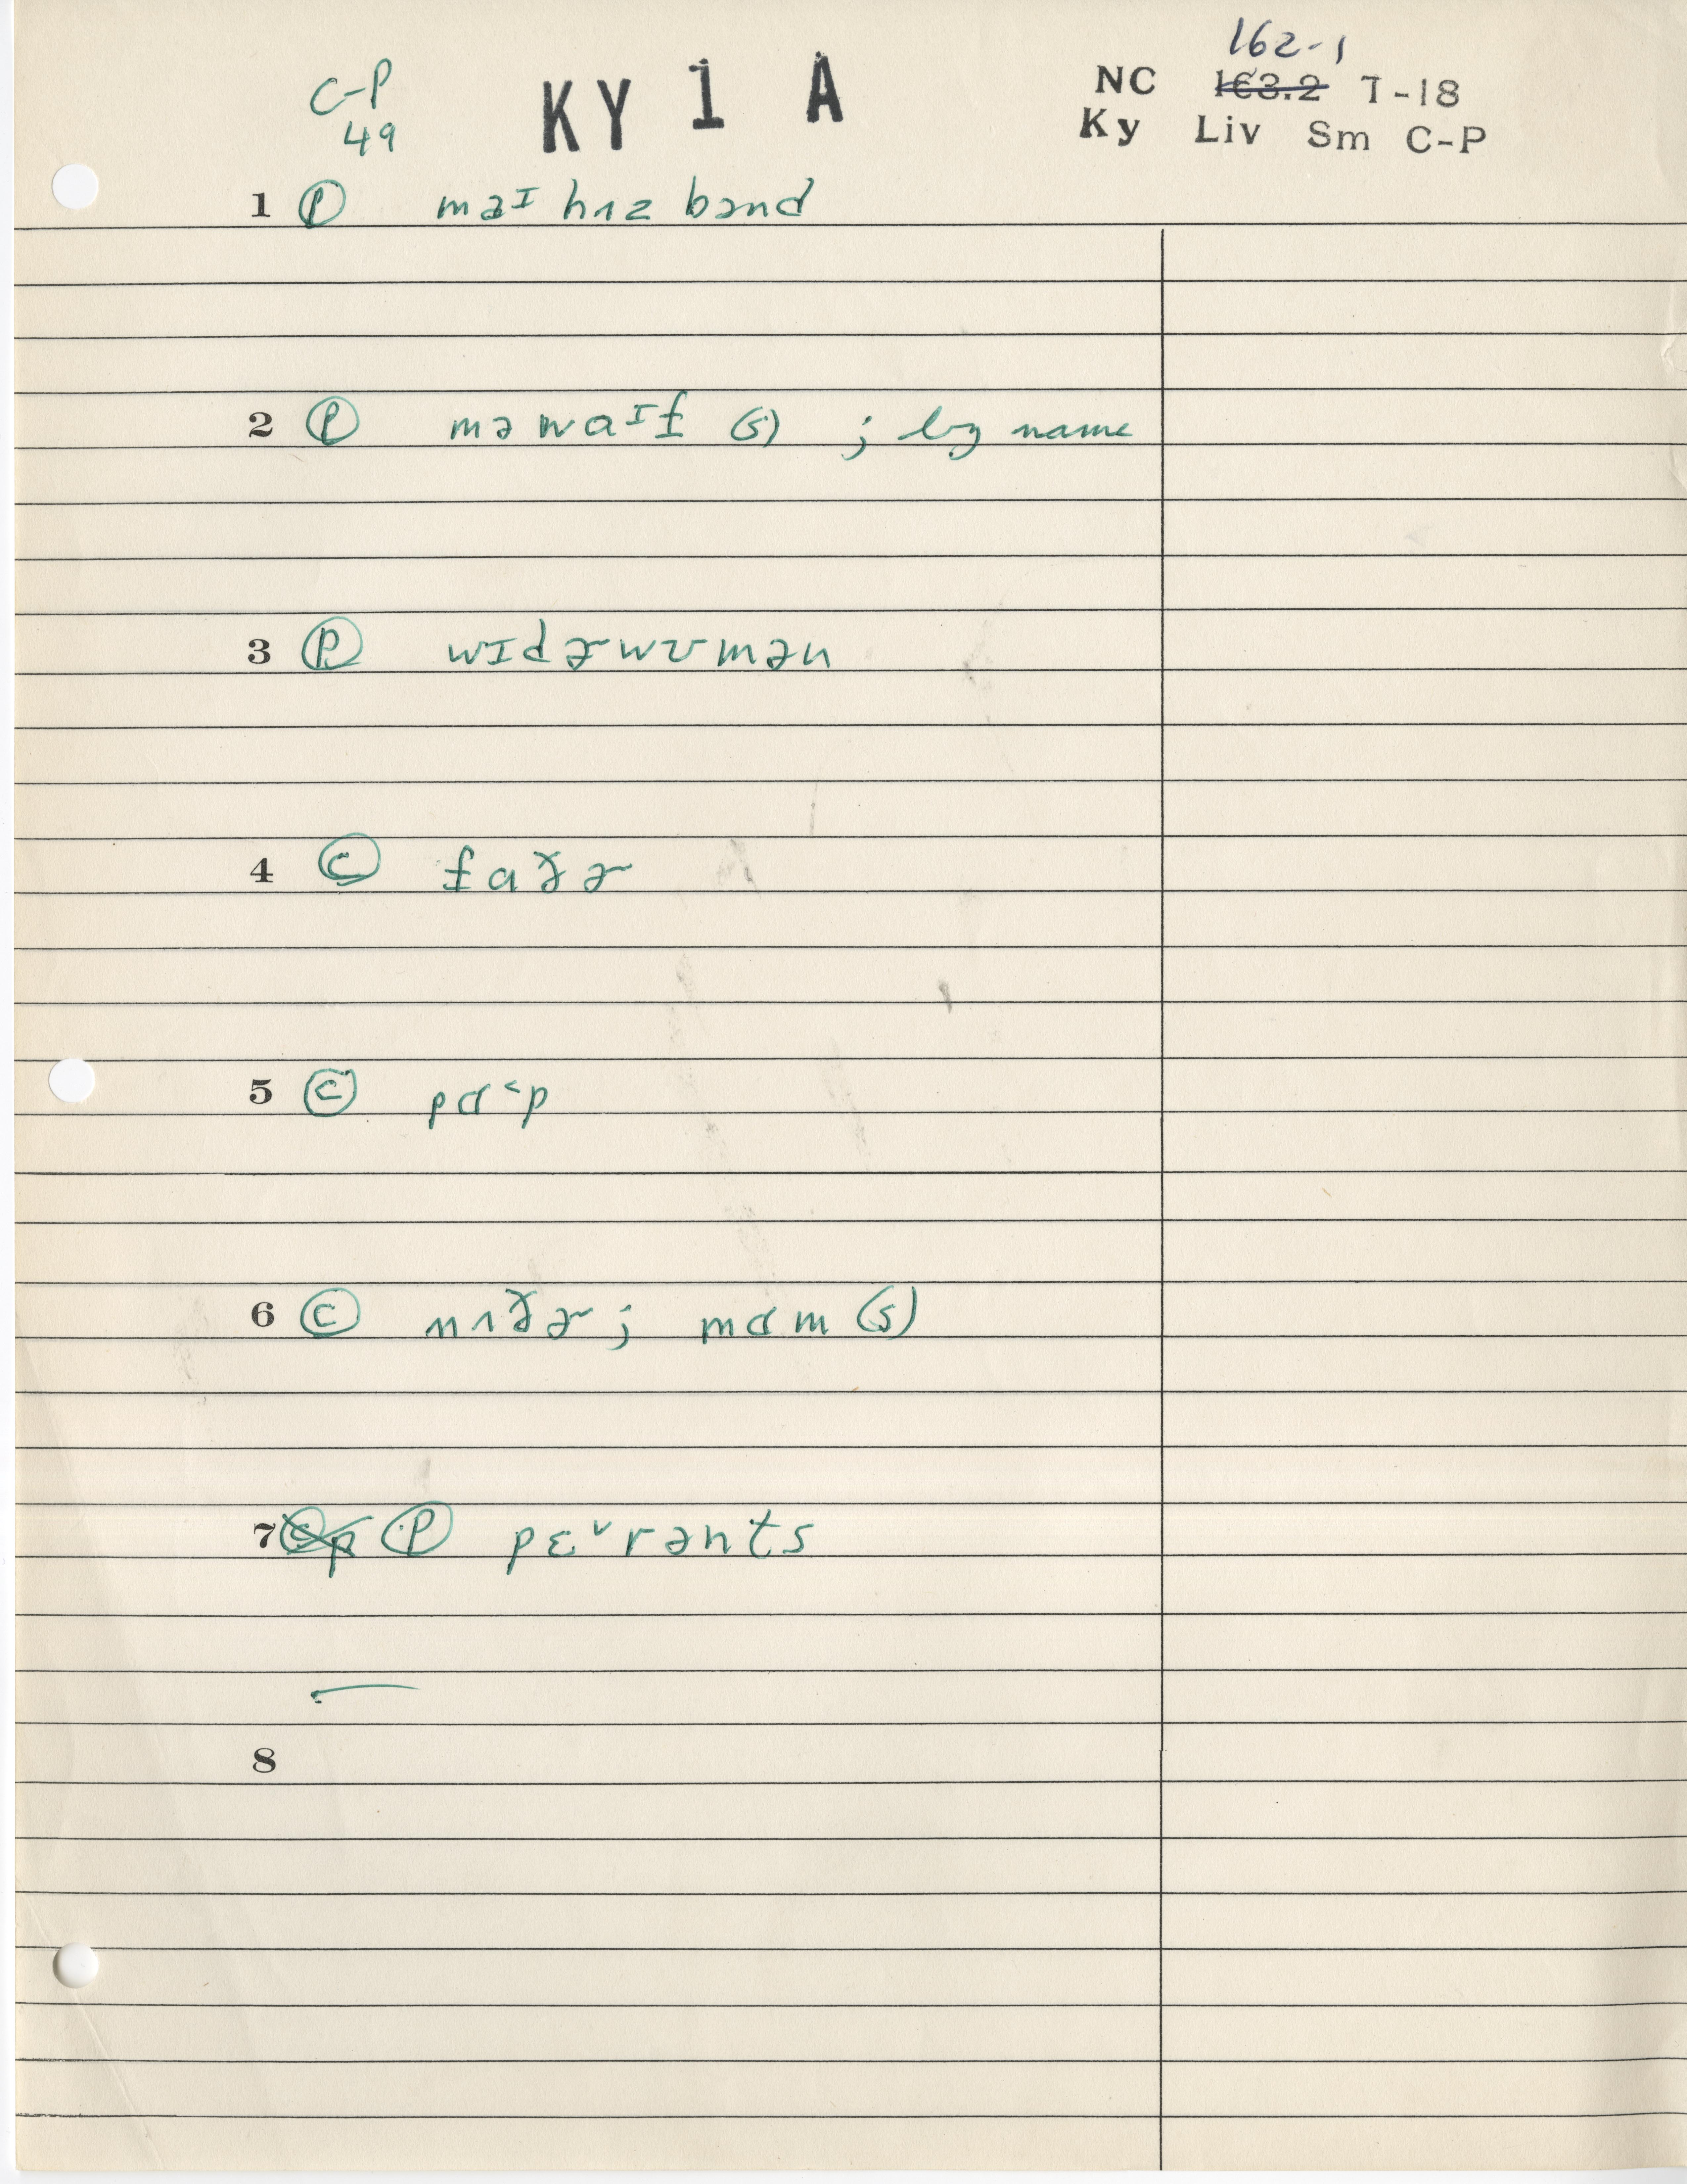 162-1
C-P KY 1 A NC 163.2 7-18
49 Ky Liv Sm C-P
1 Ⓟ məᶦ hʌz bənd
2 Ⓟ mə waᶦf (s) ; by name
3 Ⓟ wɪdɚwʊmən
4 Ⓒ faðɚ
5 Ⓒ pɑ˂p
6 Ⓒ mʌðɚ ; mɑm (s)
7 Ⓟ pɛ˅rənts
8